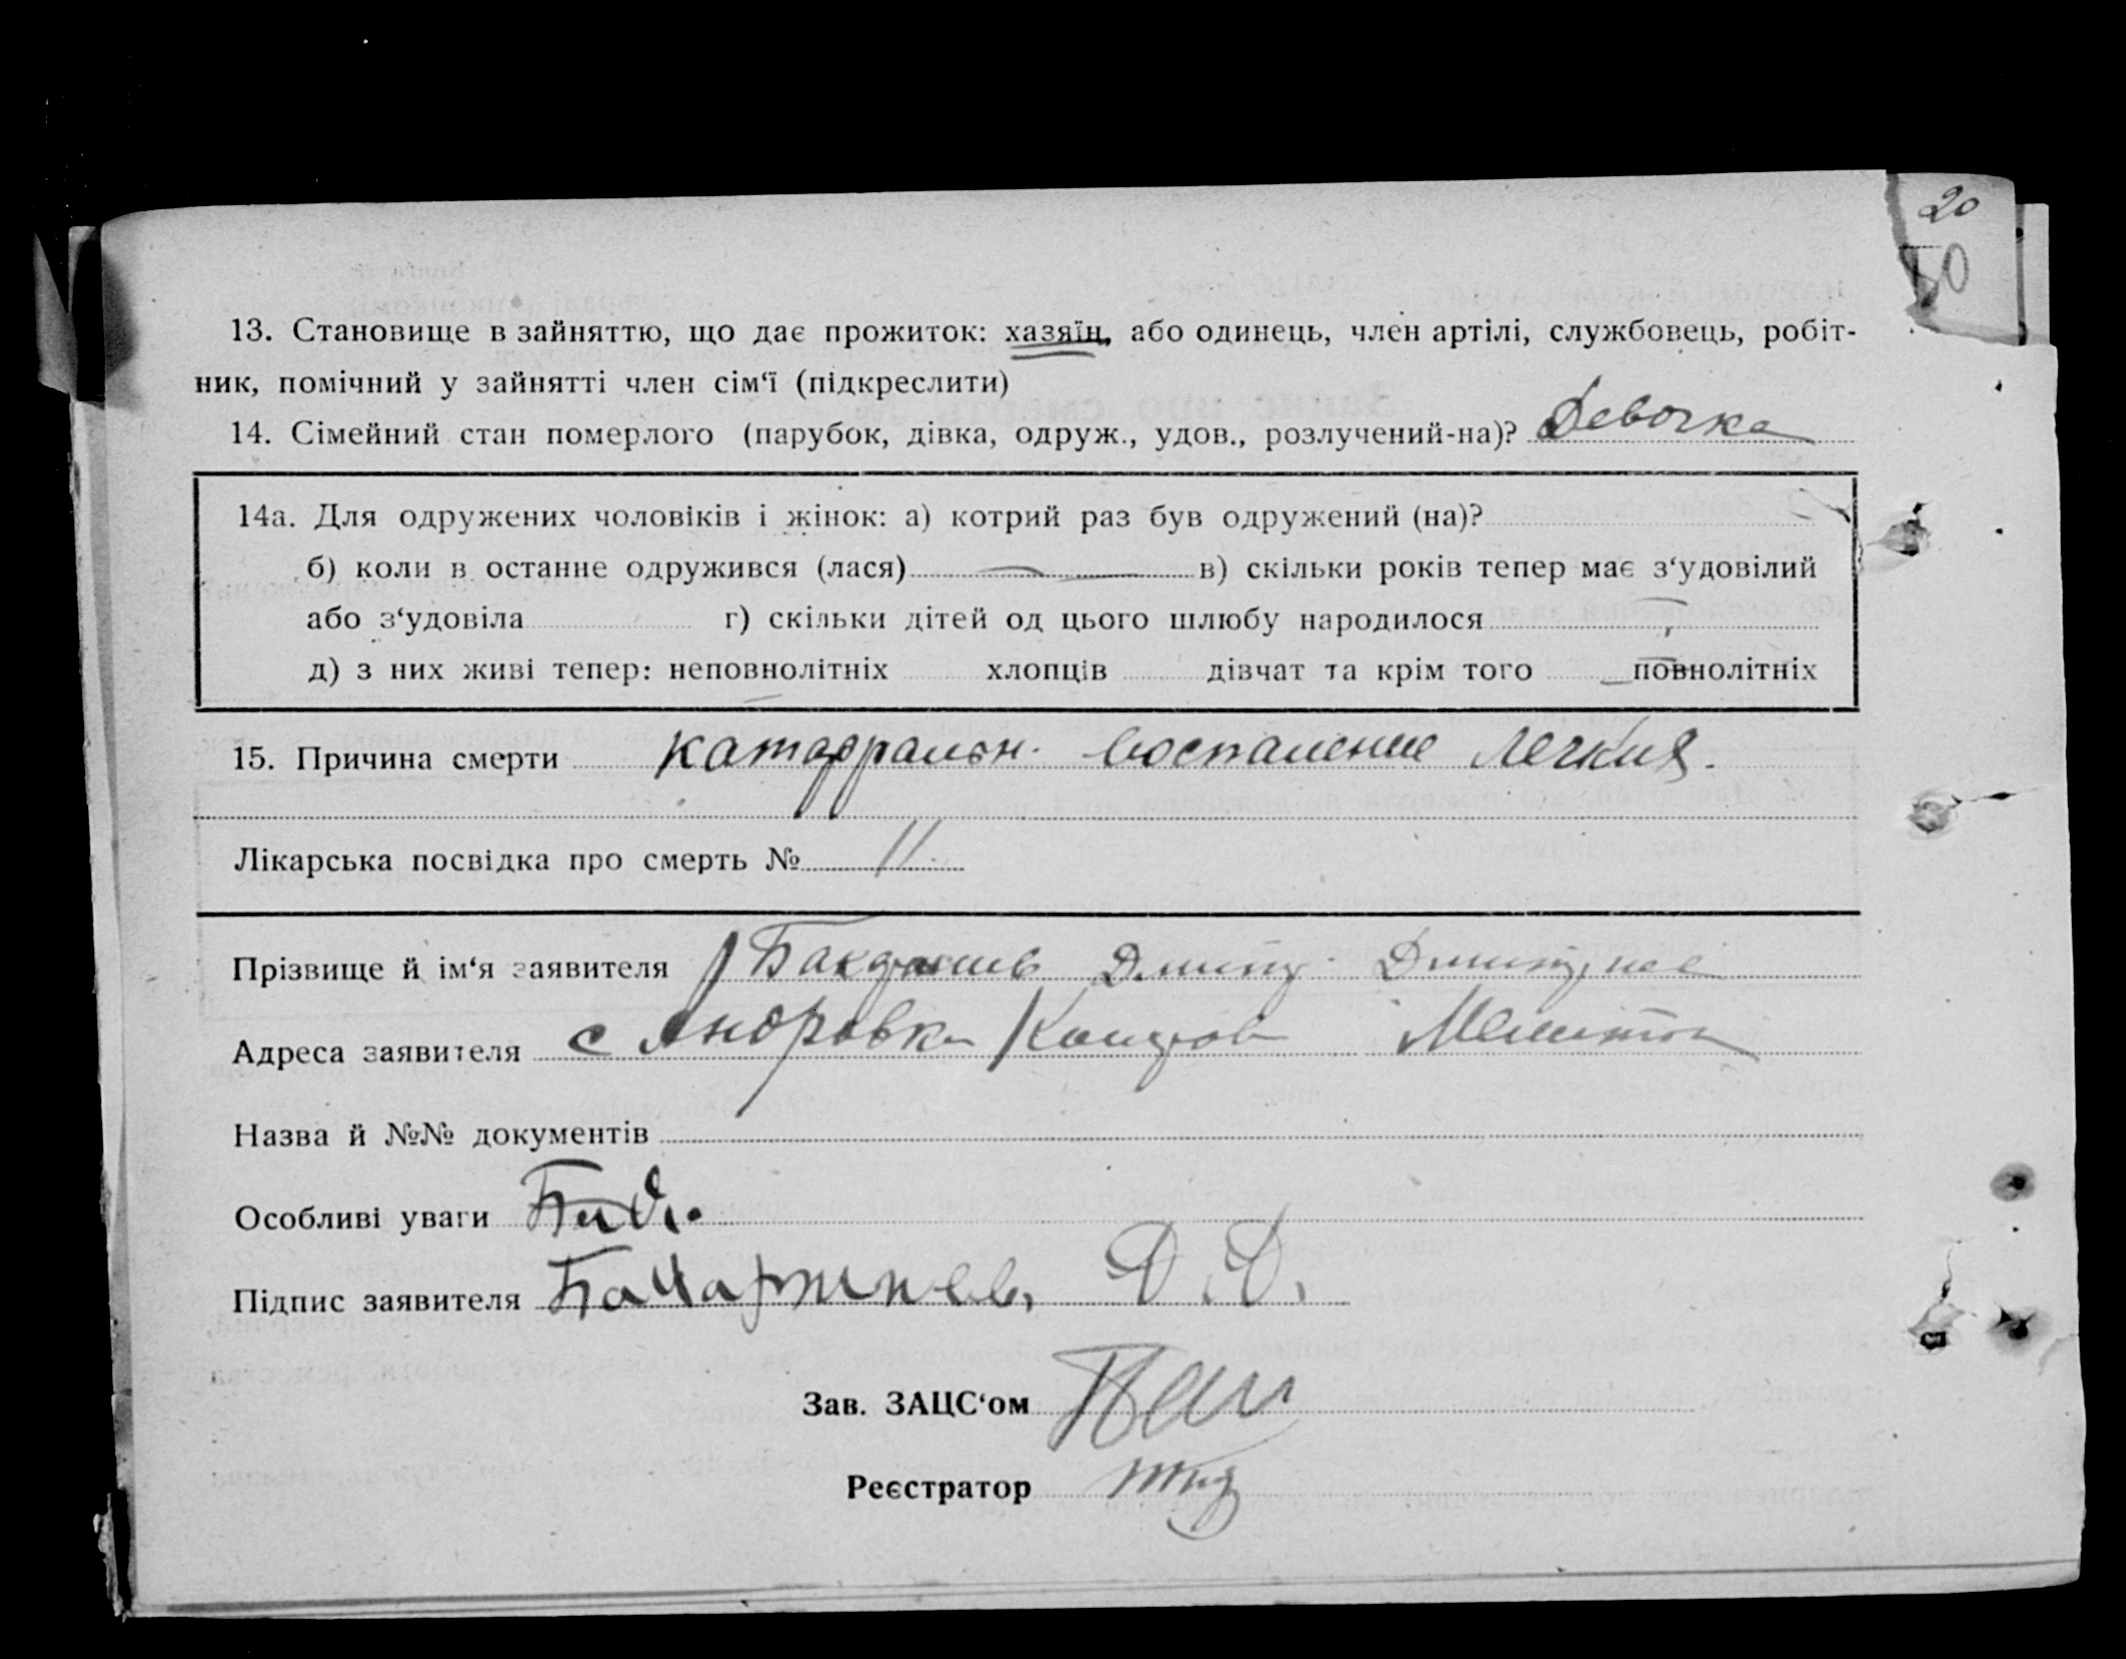 20
50
13. Становище в зайняттю, що дає прожиток: хазяїн, або одинець, член артілі, службовець, робіт-
ник, помічний у зайнятті член сім‘ї (підкреслити)
14. Сімейний стан померлого (парубок, дівка, одруж., удов., розлучений-на)? Девочка
14а. Для одружених чоловіків і жінок: а) котрий раз був одружений (на)?
б) коли в останне одружився (лася) в) скільки років тепер має з‘удовілий
або з‘удовіла г) скільки дітей од цього шлюбу народилося
д) з них живі тепер: неповнолітніх хлопців дівчат та крім того повнолітніх
15. Причина смерти катарральн. воспаление легких.
Лікарська посвідка про смерть № 11.
Прізвище й ім‘я заявителя Дмитр.
Адреса заявителя с Андровка
Назва й №№ документів
Особливі уваги
Підпис заявителя Д. Д.
Зав. ЗАЦС‘ом
Реєстратор